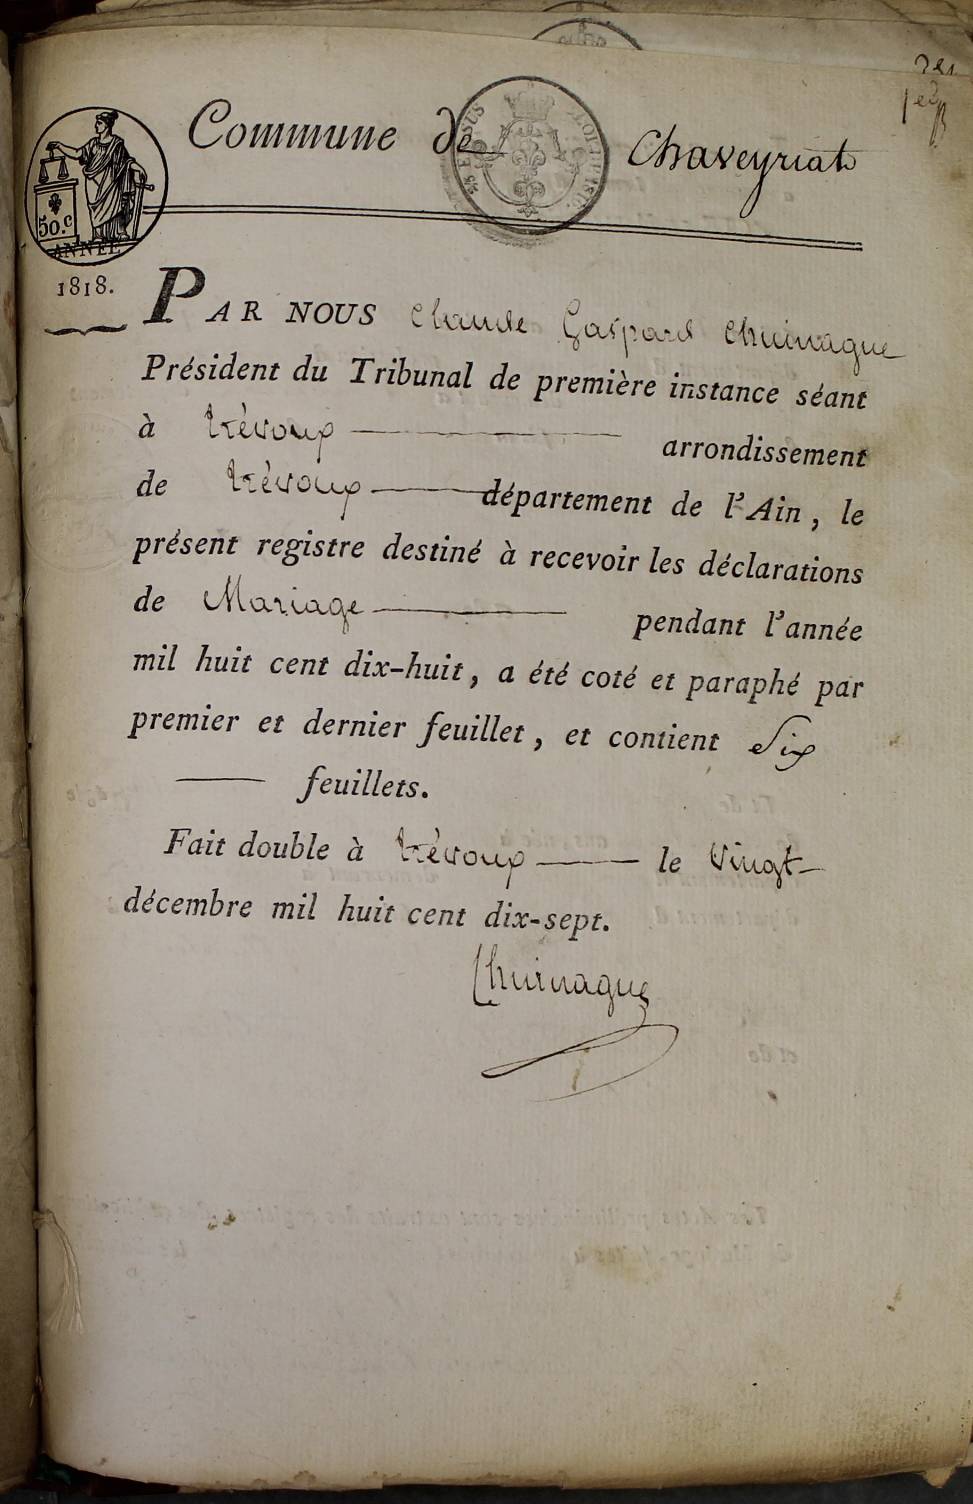 Commune de Chaveyriat
50.c
ANNÉE
1818.
PAR NOUS Claude Gaspard Chuinague
Président du Tribunal de première instance séant
à trévoux arrondissement
de trévoux département de l'Ain, le
présent registre destiné à recevoir les déclarations
de Mariage pendant l'année
mil huit cent dix-huit, a été coté et paraphé par
premier et dernier feuillet, et contient Six
feuillets.
Fait double à trévoux le vingt
décembre mil huit cent dix-sept.
Chuinague